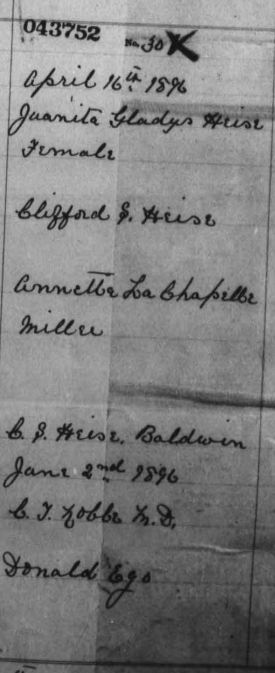 043752
No. 30 X
April 16th 1896
Juanita Gladys Heise
Female
Clifford S. Heise
Annetta La Chapelle
Miller
C. S. Heise, Baldwin
June 2nd 1896
C. T. M.D.
Donald Ego